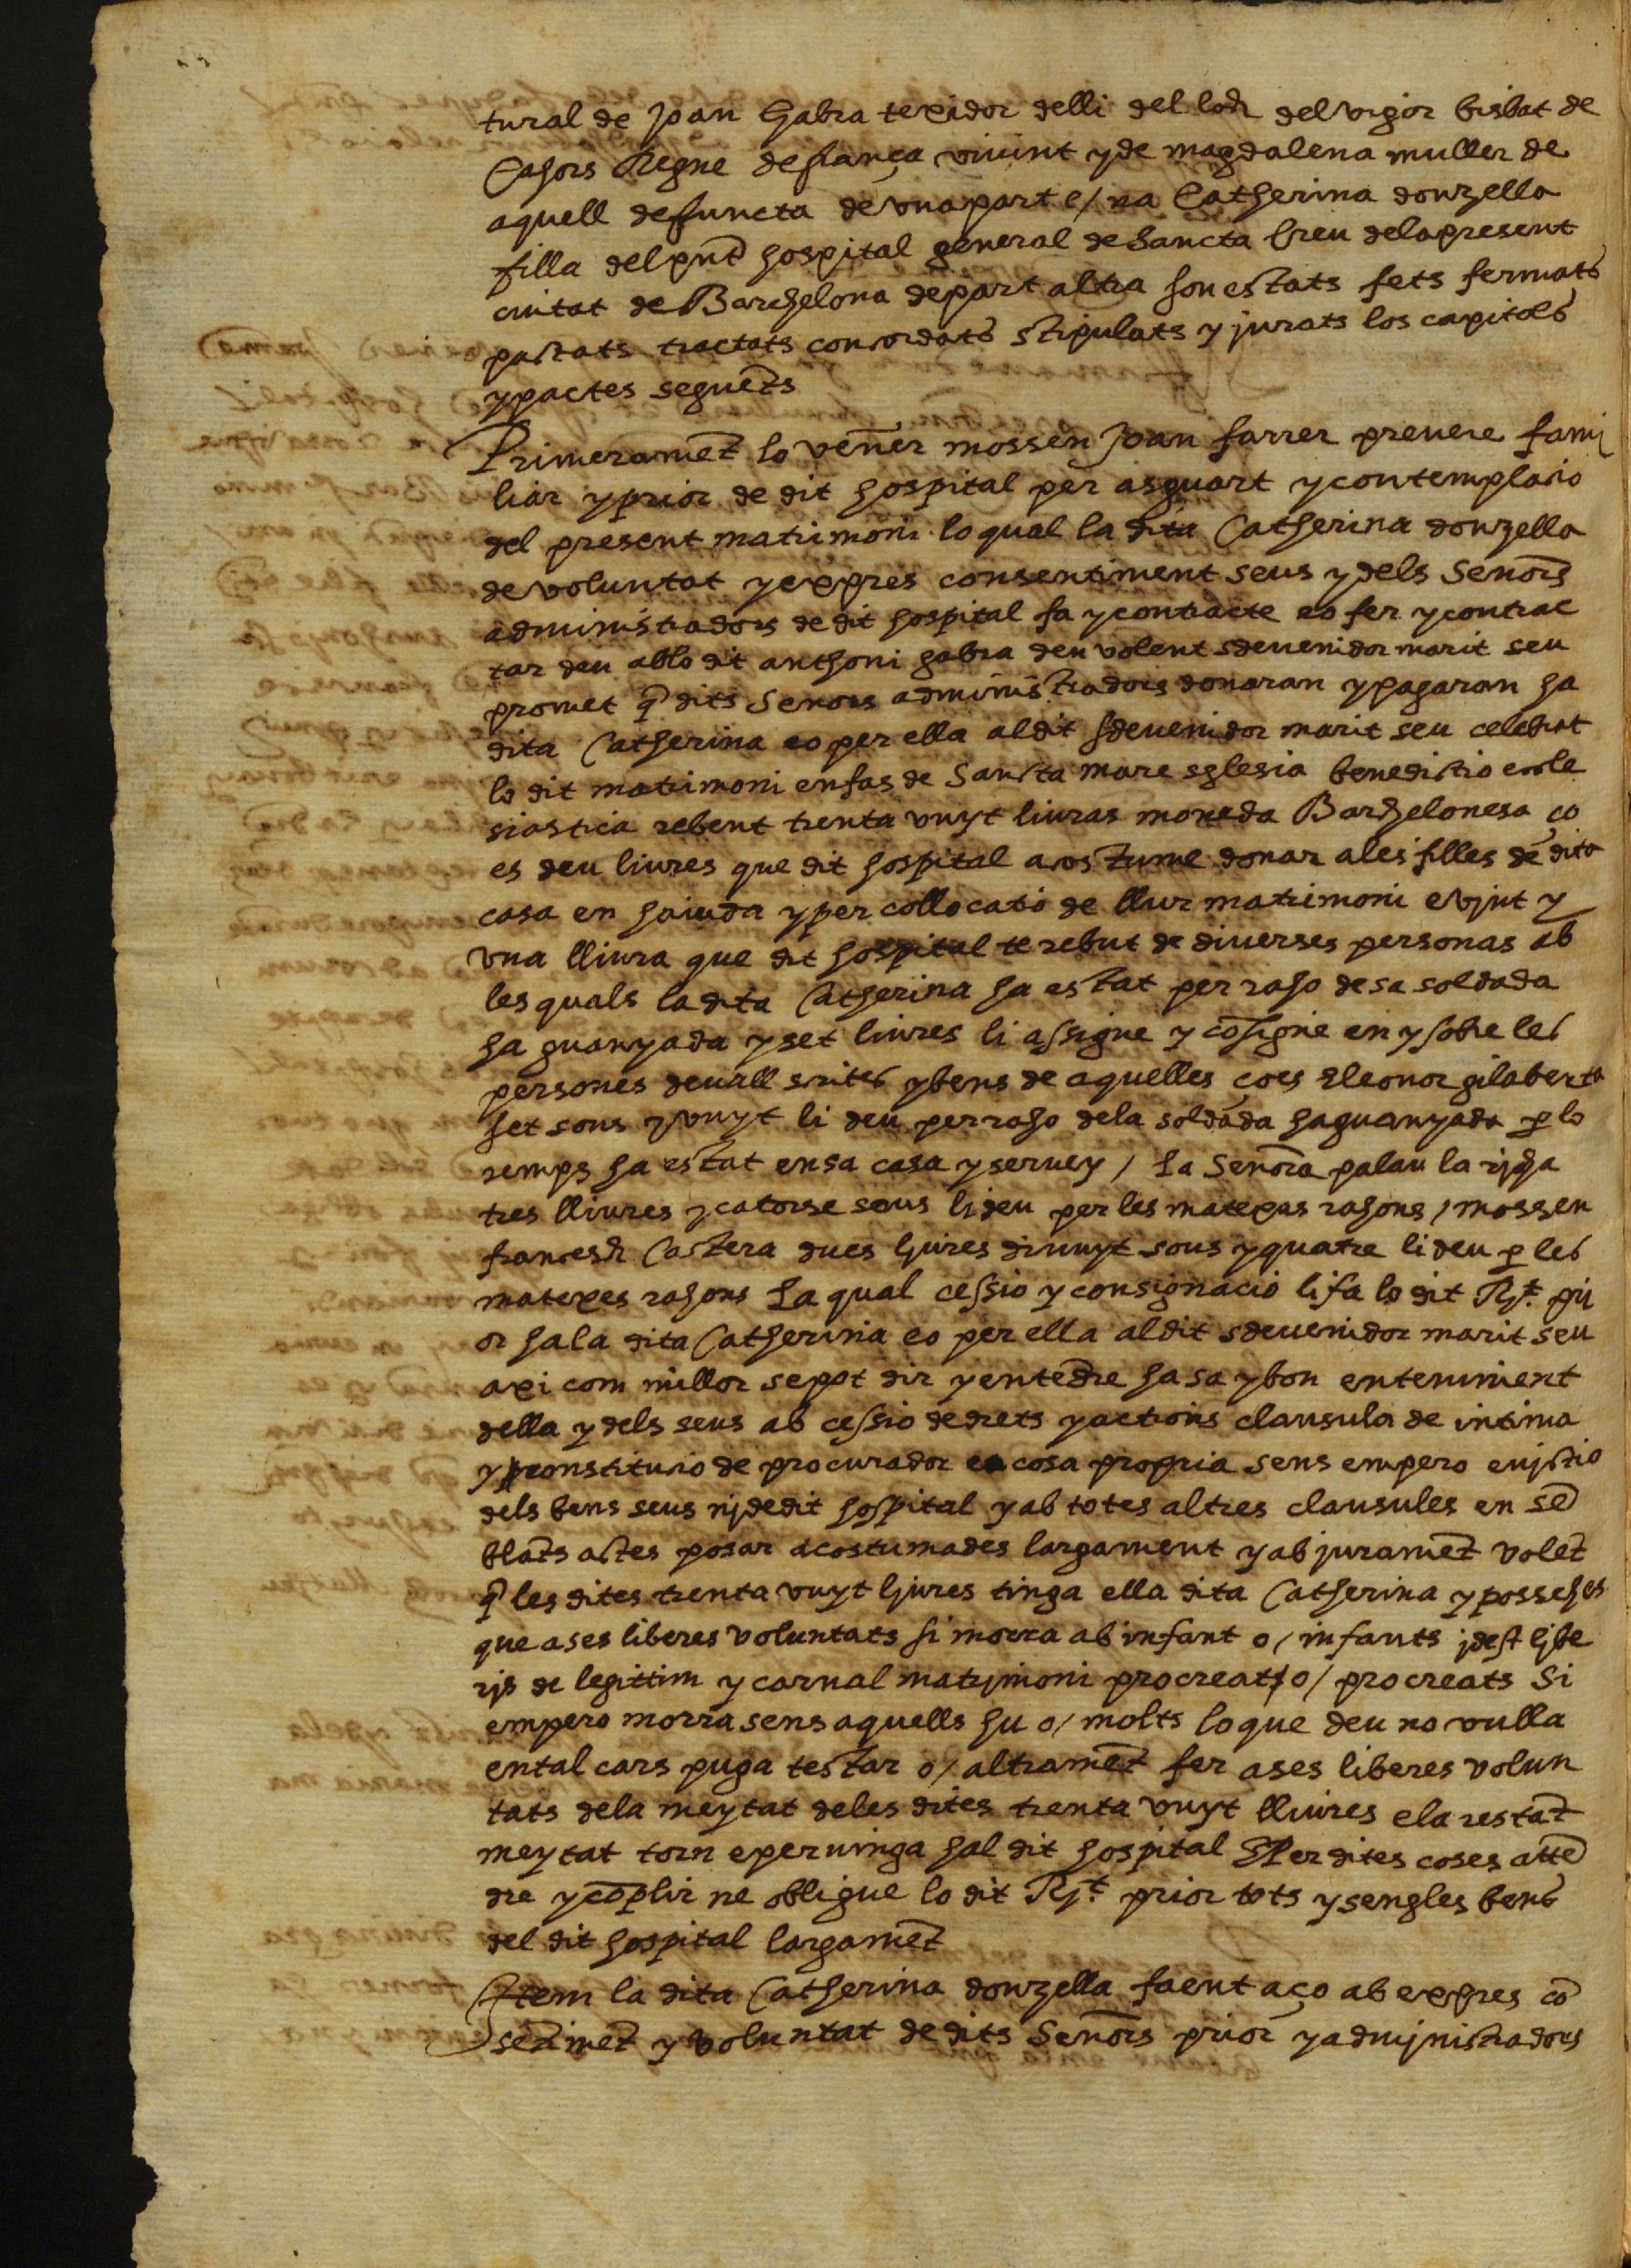 tural de Joan Gabra texidor delli del loch del vigor bisbat de
Cahors Regne de frança vivint y de magdalena muller de
aquell defuncta de vna part e/ na Catherina donzella
filla del pnt hospital general de Sancta Creu dela present
ciutat de Barchelona de part altra son estats fets fermats
pactats tractats concordats stipulats y jurats los capitols
y pactes seguēts
Primeramēt lo vener mossen Joan farrer preuere fami
liar y prior de dit hospital per asguart y contemplacio
del present matrimoni lo qual la dita Catherina donzella
de voluntat y expres consentiment seus y dels Senors
administradors de dit hospital fa y contracte eo fer y contrac
tar deu ab lo dit anthoni gabra deu volent sdeuenidor marit seu
promet q̄ dits Senors administradors donaran y pagaran ha
dita Catherina eo per ella al dit sdeuenidor marit seu celebrat
lo dit matrimoni en fas de Sancta mare sglesia benedictio eccle
siastica rebent trenta vuyt liuras moneda Barchelonesa ço
es deu liures que dit hospital acostume donar a les filles de dita
casa en haiuda y per collocatio de llur matrimoni e vjnt y
vna lliura que dit hospital te rebut de diuerses personas ab
les quals la dita Catherina ha estat per raho de sa soldada
ha guanyada y set liures li assigne y cōsigne en y sobre les
persones deuall scrites y bens de aquelles ço es Eleonor gilaberta
set sous y vuyt li deu per raho dela soldada ha guanyada p̱ lo
temps ha estat en sa casa y seruey / La Senora palau la
tres lliures y catorse sous li deu per les matexas rahons / mossen
francesch Castera dues ljures diuuyt sous y quatre li deu p̱ les
matexes rahons La qual cessio y consignacio li fa lo dit Rt. pri
or ha la dita Catherina eo per ella al dit sdeuenidor marit seu
axi com millor se pot dir y entēdre ha sa y bon enteniment
della y dels seus ab cessio de drets y actions clausula de intima
y constitucio de procurador en cosa propria sens empero euictio
dels bens seus nj de dit hospital y ab totes altres clausules en sē
blāts actes posar acostumades largament y ab juramēt volēt
q̄ les dites trenta vuyt ljures tinga ella dita Catherina y possehes
que a ses liberes voluntats si morra ab infant o/ infants jdest ljbe
rjs de legittim y carnal matrjmoni procreat o/ procreats Si
empero morra sens aquells hu o/ molts lo que deu no vulla
en tal cars puga testar o/ altramēt fer a ses liberes volun
tats dela meytat deles dites trenta vuyt lliures e la restāt
meytat torn e peruinga hal dit hospital E Per dites coses attē
dre y cōplir ne obligue lo dit Rt. prior tots y sengles bens
del dit hospital largamēt
Item la dita Catherina donzella faent aço ab expres cō
sentimēt y voluntat de dits Senors prior y admjnistradors